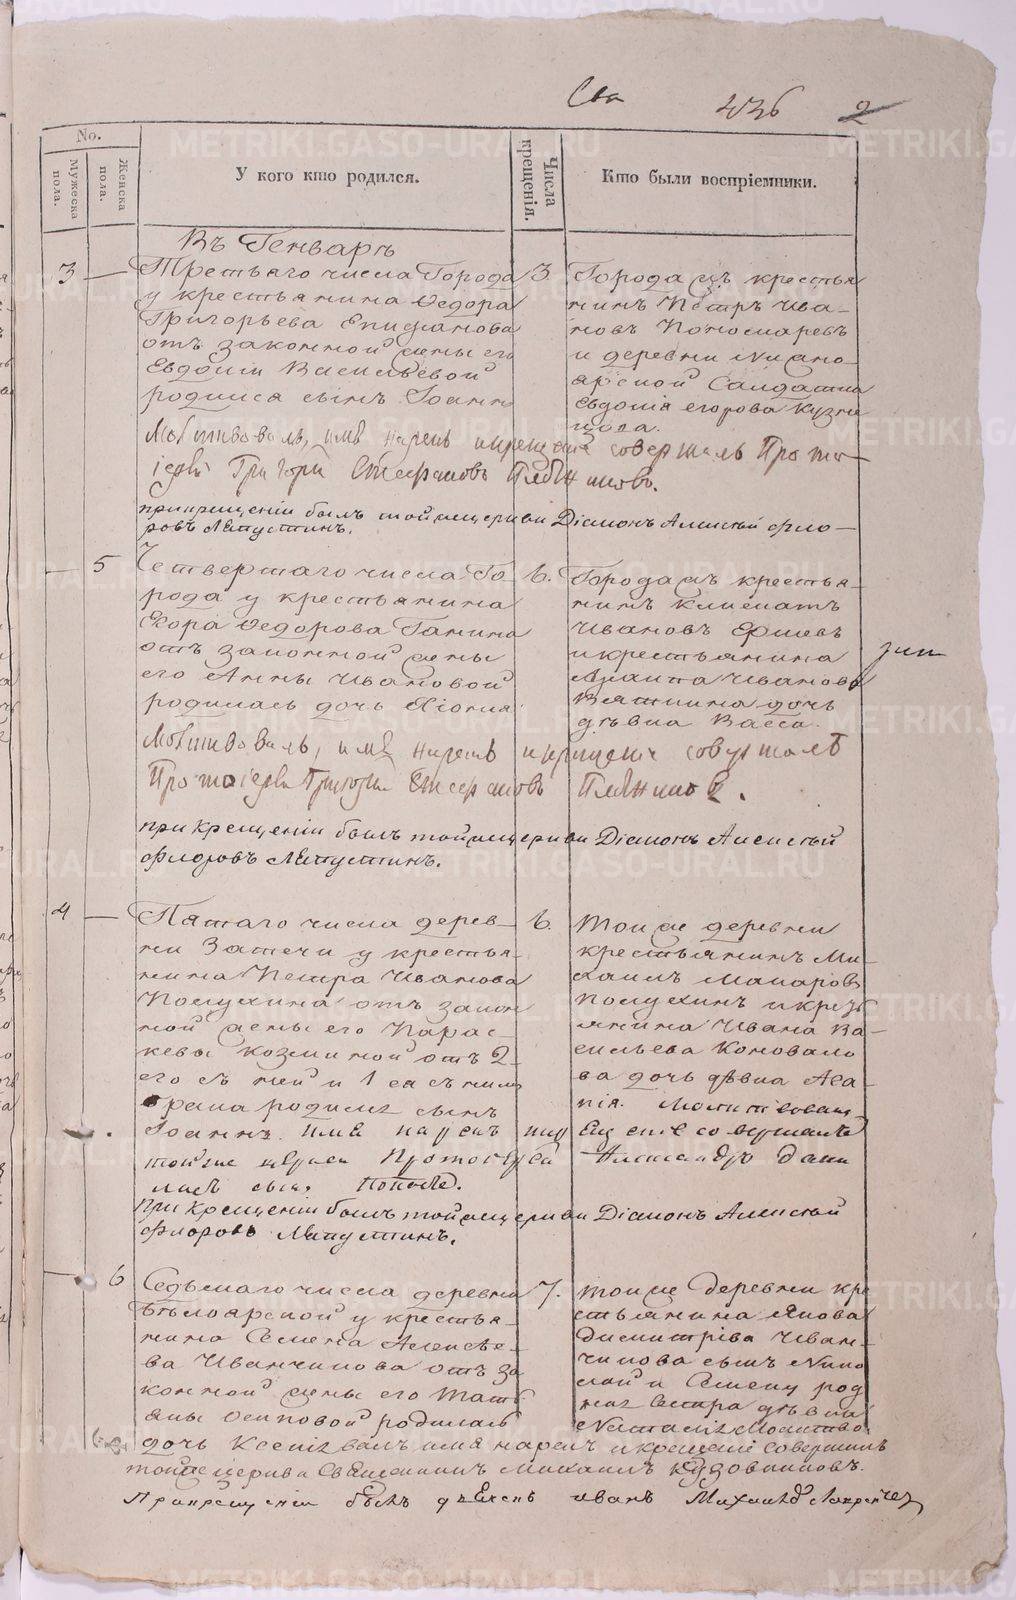 436 2
No.
Мужеска пола.
Женска пола.
У кого кто родился.
Числа крещенія.
Кто были воспріемники.
Въ Генварѣ
3
Третьяго числа Города
у крестьянина Ѳедора
Григорьева Епифанова
отъ законной жены его
Евдокіи Васильевой
родился сынъ Іоаннъ
3.
Города жъ крестья
нинъ Петръ Ива-
новъ Пономаревъ
и деревни
ярской Салдатка
Евдокія Егорова Кузне
цова.
Молитвовалъ, имя нарекъ и крещеніе совершалъ Прото-
іерей Григорій Стефановъ
при крещеніи былъ той же церкви Діаконъ Алексѣй Фло-
ровъ Лапустинъ.
5
Четвертаго числа Го
рода у крестьянина
Егора Ѳедорова Ганина
отъ законной жены
его Анны Ивановой
родилась дочь Ксенія
6.
Города жъ крестья-
нинъ Климантъ
Ивановъ Ершевъ
и крестьянина
Иванова
Вяткина дочь
дѣвка Васса.
Молитвовалъ, имя нарекъ и крещеніе совершалъ
Протоіерей Григорій Стефановъ
при крещеніи былъ той же церкви Діаконъ Алексѣй
Флоровъ Лапустинъ.
4
Пятаго числа дерев-
ни Затечи у крестья-
нина Петра Иванова
Полухина отъ закон
ной жены его Парас-
кевы Козминой отъ 2-
его съ ней и 1 ея съ нимъ
брака родился сынъ
Іоаннъ. имя нарекъ
6.
Той же деревни
крестьянинъ Ми-
хаилъ Макаровъ
Полухинъ и кресть
янина Ивана Ва-
сильева Коновало
ва дочь дѣвка Ага-
пія. Молитвовалъ
и крещеніе совершалъ
той же церкви Протоіерей Александръ Дани
ловъ сынъ Поповъ.
При крещеніи былъ той же церкви Діаконъ Алексѣй
Флоровъ Лапустинъ.
6
Седьмаго числа деревни
Бѣлоярской у крестья-
нина Семена Алексѣе-
ва Иванчикова отъ за
конной жены его Тать
яны Осиповой родилась
7.
той же деревни кре
стьянина Якова
Димитріева Иван-
чикова сынъ Нико
лай и Семену род
ная сестра дѣвка
Наталія Молитво
дочь Ксенія валъ имя нарекъ и крещеніе совершилъ
той же церкви Священникъ Михаилъ Кудовниковъ.
При крещеніи былъ дьяконъ Иванъ Михайловъ